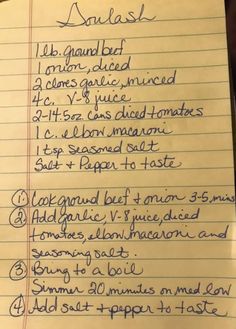 Goulash
1 lb. ground beef
1 onion, diced
2 cloves garlic, minced
4 c. V-8 juice
2-14.5oz cans diced tomatoes
1 c. elbow macaroni
1 tsp seasoned salt
Salt & Pepper to taste
① Cook ground beef & onion 3-5 mins
② Add garlic, V-8 juice, diced
tomatoes, elbow macaroni and
seasoning salt.
③ Bring to a boil
Simmer 20 minutes on med low
④ Add salt & pepper to taste